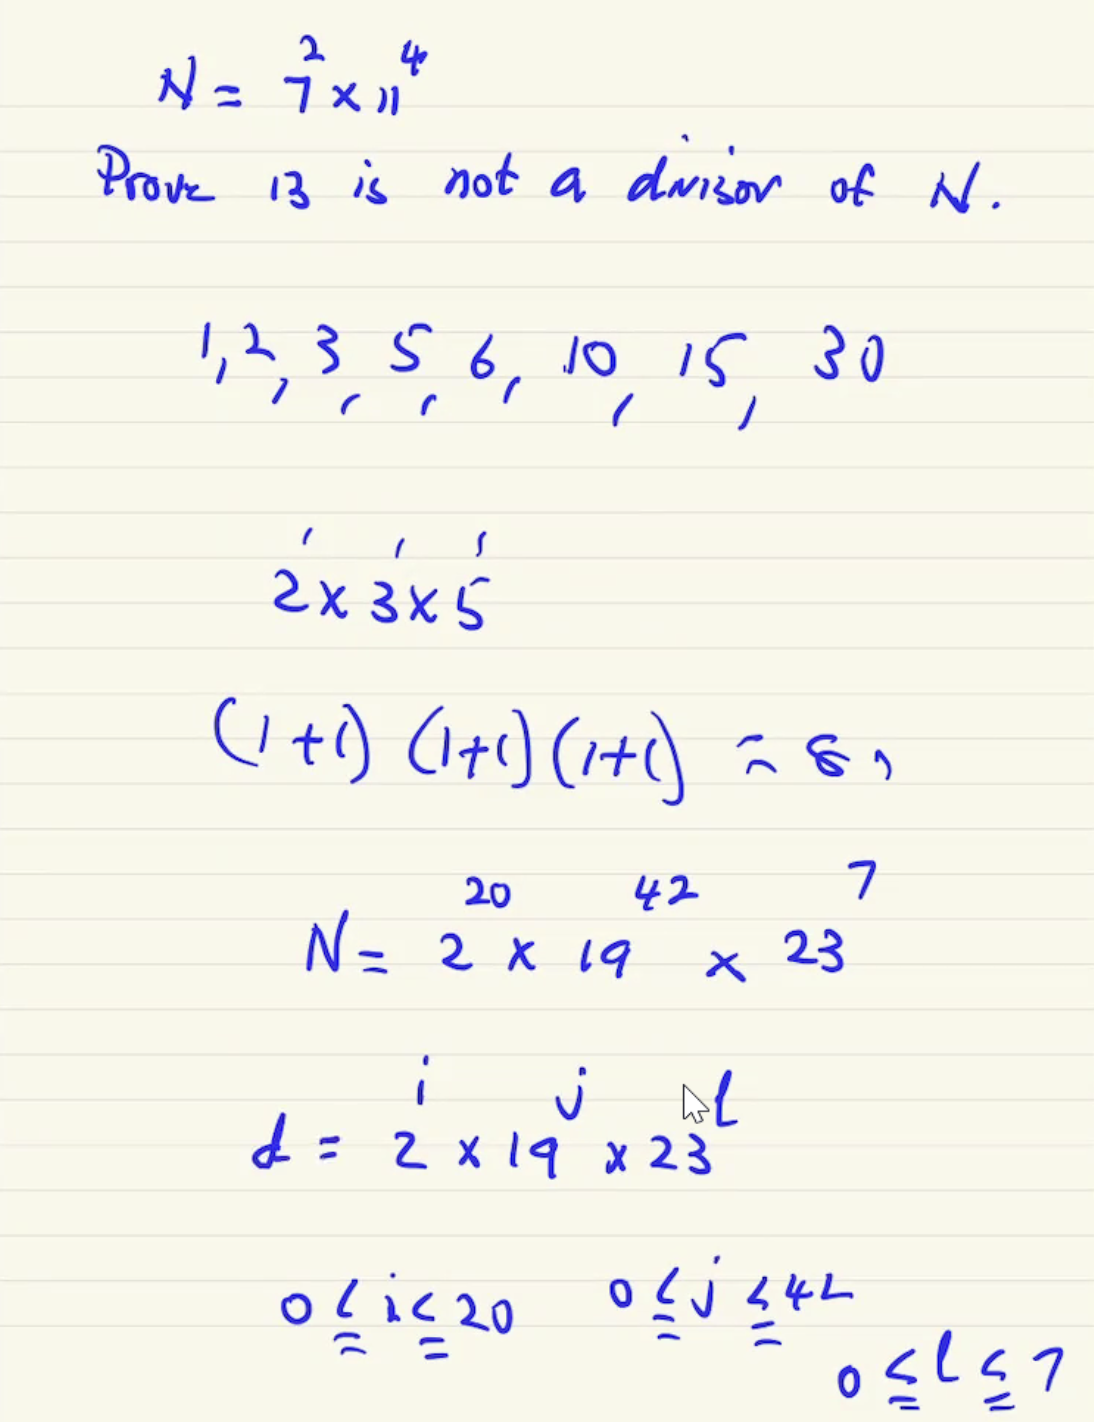 N = 7² × 11⁴
Prove 13 is not a divisor of N.
1, 2, 3, 5, 6, 10, 15, 30
2¹ × 3¹ × 5¹
(1+1) (1+1) (1+1) = 8,
N = 2²⁰ × 19⁴² × 23⁷
d = 2ⁱ × 19ʲ × 23ˡ
0 ≤ i ≤ 20 0 ≤ j ≤ 42
0 ≤ l ≤ 7